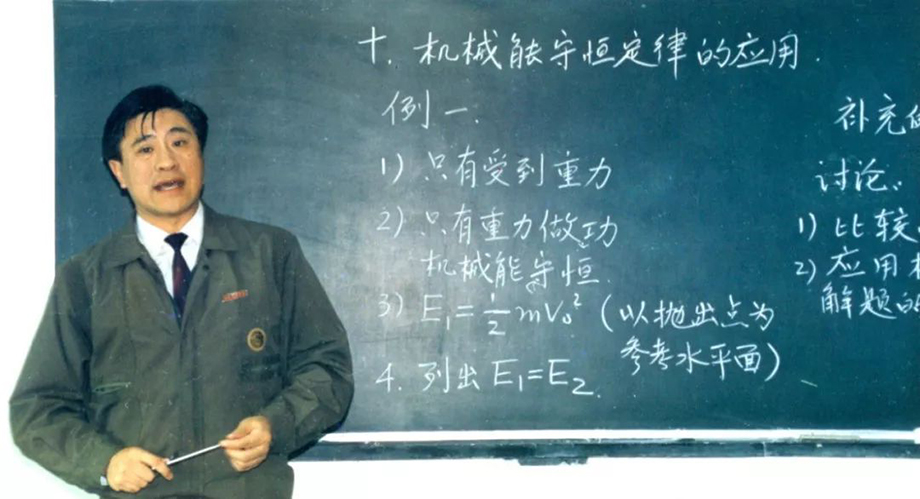 十. 机械能守恒定律的应用.
例一.
1) 只有受到重力
2) 只有重力做功
机械能守恒.
3) E₁=½mV₀² (以抛出点为
参考水平面)
4. 列出 E₁=E₂.
补充
讨论.
1) 比较
2) 应用
解题的